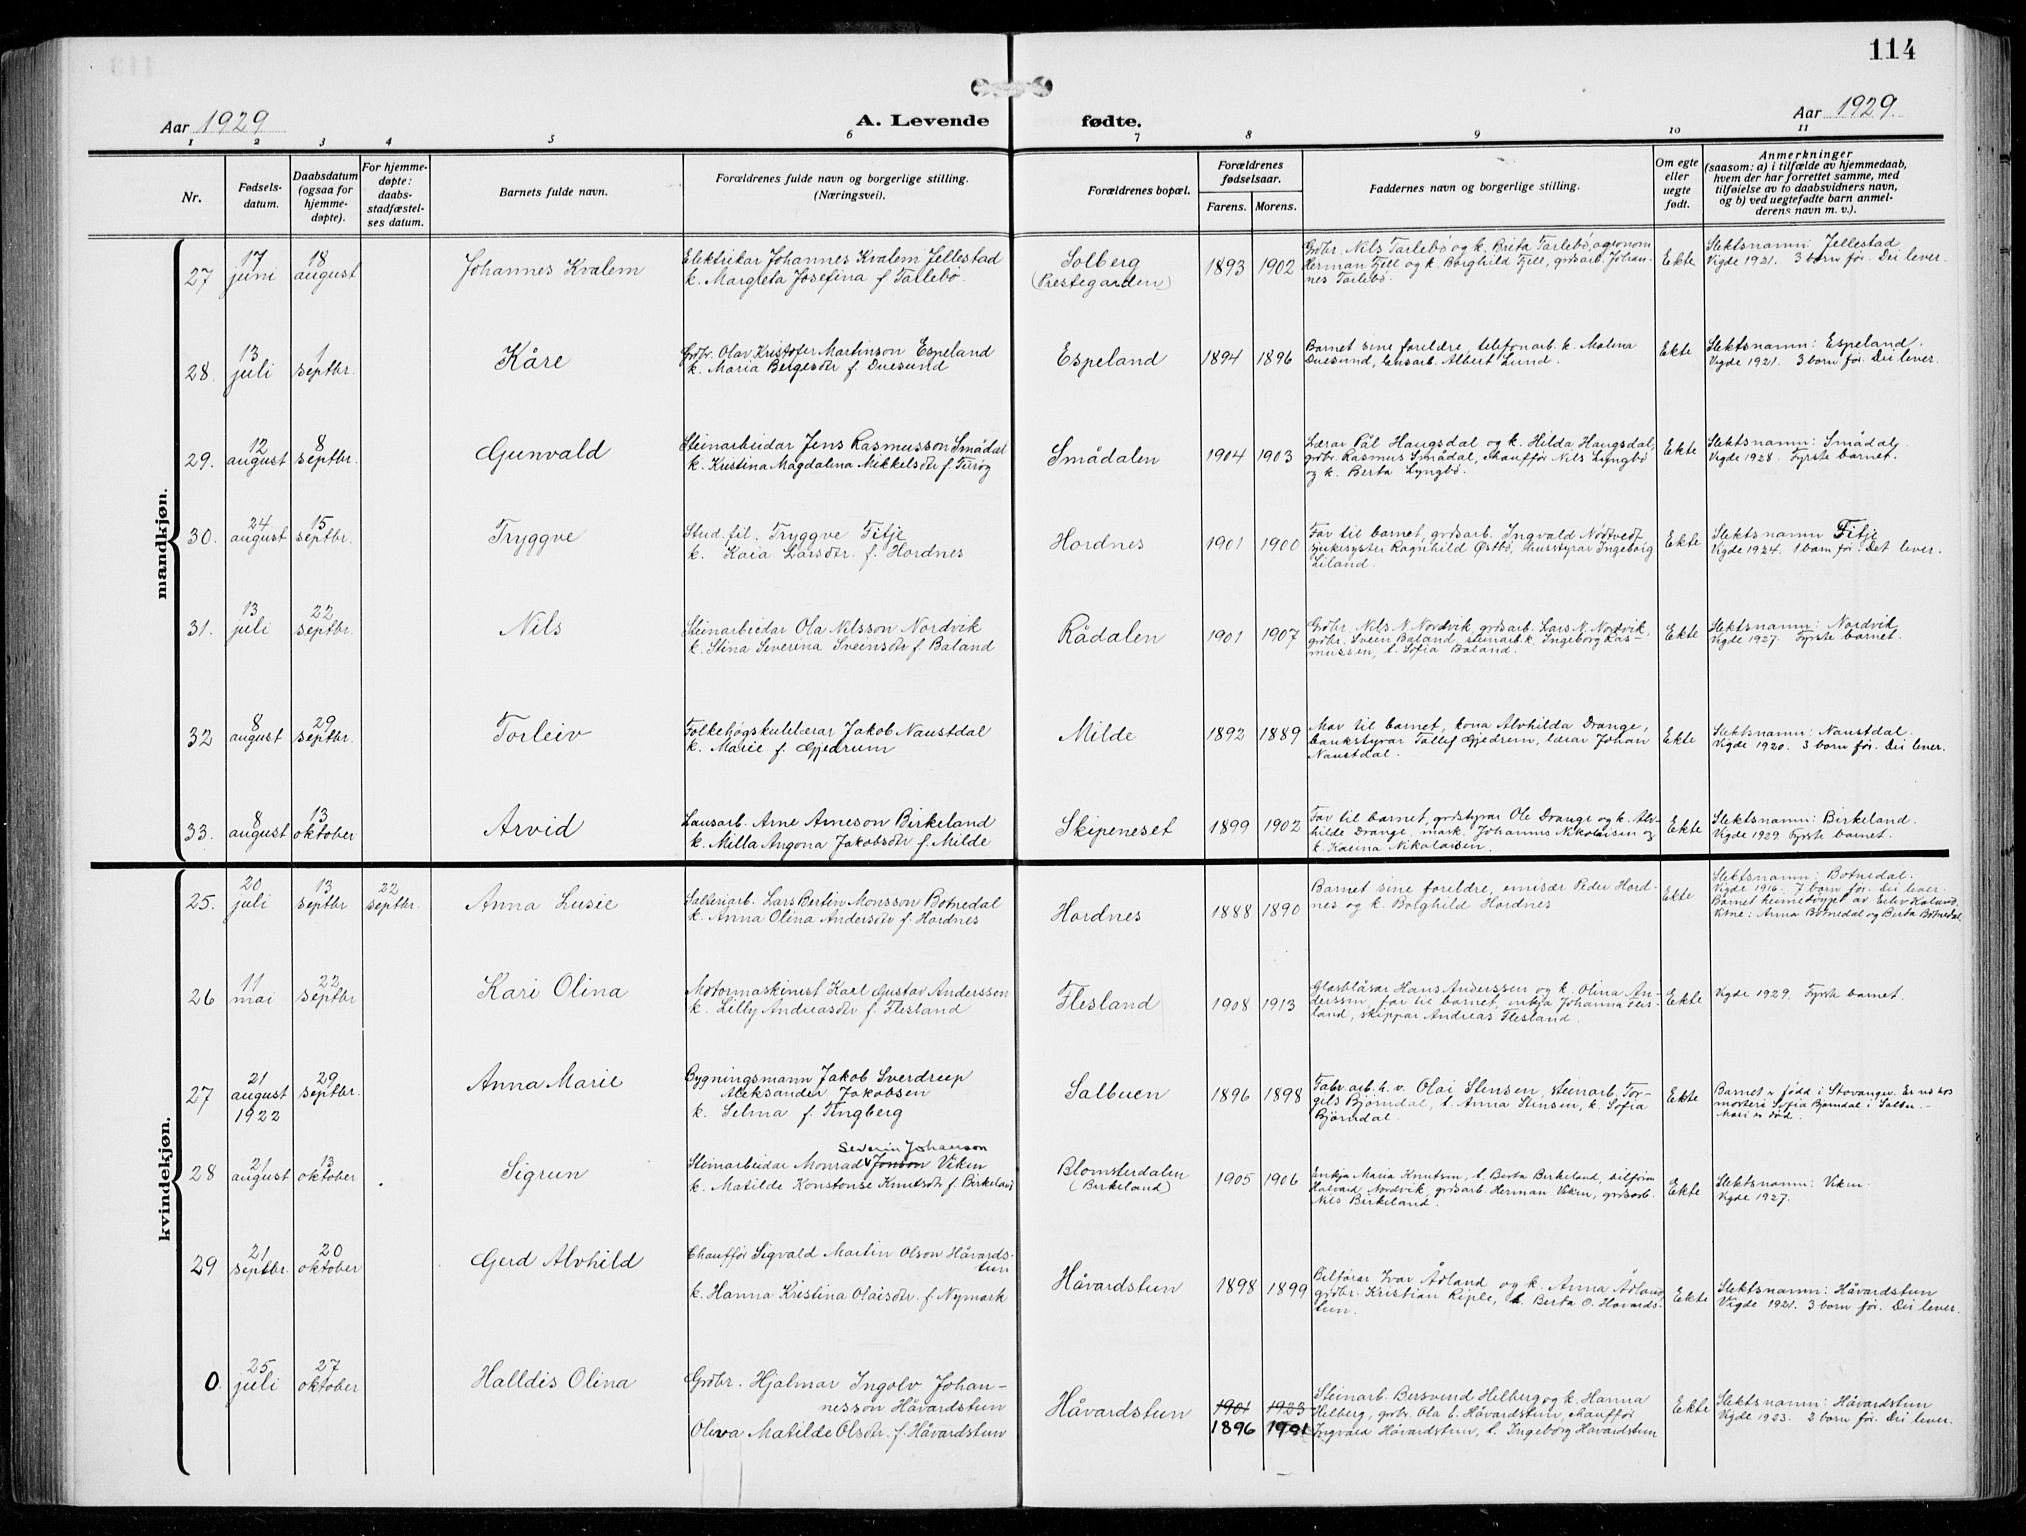 114
Aar 1929
A. Levende fødte.
Aar 1929.
1 2 3 4 5 6 7 8 9 10 11
Nr.
Fødsels-
datum.
Daabsdatum
(ogsaa for
hjemme-
døpte).
For hjemme-
døpte:
daabs-
stadfæstel-
ses datum.
Barnets fulde navn.
Forældrenes fulde navn og borgerlige stilling.
(Næringsvei).
Forældrenes bopæl.
Forældrenes
fødselsaar.
Farens. Morens.
Faddernes navn og borgerlige stilling.
Om egte
eller
uegte
født.
Anmerkninger
(saasom: a) i tilfælde av hjemmedaab,
hvem der har forrettet samme, med
tilføielse av to daabsvidners navn,
og b) ved uegtefødte barn anmel-
derens navn m. v.).
mandkjøn.
27
17
juni
18
august
Johannes Kvalem
Elektrikar Johannes Kvalem Jellestad
k. Margreta Josefina f. Tarlebø.
Solberg
(Prestegarden)
1893 1902
Grdbr. Nils Tarlebø og k. Brita Tarlebø, agronom
Herman Fjell og k. Borghild Fjell, grdsarb. Johan-
nes Tarlebø.
Ekte
Slektsnamn: Jellestad
Vigde 1921. 3 born før. Dei lever.
28.
13
juli
1
septbr.
Kåre
Grdbr. Olav Kristofer Martinson Espeland
k. Maria Bergesdtr f. Duesund
Espeland
1894 1896
Barnet sine foreldre, telefonarb. k. Malina
Duesund, lausarb. Albert Lund.
Ekte
Slektsnamn: Espeland.
Vigde 1921. 3 born før. Dei lever.
29.
12
august
8
septbr.
Gunvald
Steinarbeidar Jens Rasmusson Smådal
k. Kristina Magdalina Mikkelsdtr f.
Smådalen
1904 1903
Lærar Pål Haugsdal og k. Hilda Haugsdal,
grdbr. Rasmus Smådal, chauffør Nils Lyngbø
og k. Berta Lyngbø.
Ekte
Slektsnamn: Smådal.
Vigde 1928. Fyrste barnet.
30.
24
august
15
septbr.
Tryggve
Stud. fil. Tryggve Fitje
k. Kaia Larsdtr. f. Hordnes
Hordnes
1901 1900
Far til barnet, grdsarb. Ingvald Nødtvedt
sjukesyster Ragnhild Østbø, husstyrar Ingeborg
Liland.
Ekte
Slektsnamn Fitje
Vigde 1924. 1 barn før. Det lever.
31.
13
juli
22
septbr.
Nils
Steinarbeidar Ola Nilsson Nordvik
k. Stina Severina Sveensdtr f. Baland
Rådalen
1901 1907
Grdbr. Nils N. Nordvik, grdsarb. Lars N. Nordvik,
grdbr. Sveen Baland steinarb. k. Ingeborg Ras-
mussen, t. Sofia Baland.
Ekte
Slektsnamn: Nordvik
Vigde 1927. Fyrste barnet.
32
8
august
29
septbr.
Torleiv
Folkehøgskulelærar Jakob Naustdal
k. Marie f. Gjedrem
Milde
1892 1889
Mor til barnet, kona Alvhilda Drange,
bankstyrar Tollef Gjedrem, lærar Johan
Naustdal.
Ekte
Slektsnamn: Naustdal.
Vigde 1920. 3 born før. Dei lever.
33.
8
august
13
oktober
Arvid
Lausarb. Arne Arneson Birkeland
k. Milla Angona Jakobsdtr f. Milde
Skipeneset
1899 1902
Far til barnet, grdstyrar Ole Drange og k. Alv-
hilde Drange, mask. Johannes Nikolaisen og
k. Karina Nikolaisen.
Ekte
Slektsnamn: Birkeland.
Vigde 1929 Fyrste barnet.
kvindekjøn.
25.
20
juli
13
septbr
22
septbr.
Anna Lusie
Salteriarb. Lars Bertin Monsson Botnedal
k. Anna Olina Andersdtr f. Hordnes
Hordnes
1888 1890
Barnet sine foreldre, emisær Peder Hord-
nes og k. Borghild Hordnes
Ekte
Slektsnamn: Botnedal.
Vigde 1916. 7 born før. Dei lever.
Barnet heimedøypt av Eiliv Kaland.
Vitne: Anna Botnedal og Berta Botnedal.
26
11
mai
22
septbr
Kari Olina
Motormaskinist Karl Gustav Anderssen
k. Lilly Andreasdtr f. Flesland
Flesland
1908 1913
Glasblåsar Hans Anderssen og k. Olina An-
derssen, far til barnet, enkja Johanna Fles-
land, skippar Andreas Flesland.
Ekte
Vigde 1929. Fyrste barnet.
27
21
august
1922
29
septbr.
Anna Marie
Bygningsmann Jakob Sverdrup
Aleksander Jakobsen
k. Selma f. Tingberg
Salbuen
1896 1898
Fabr.arb. h. v. Olai Stensen, steinarb. Tor-
gils Bjørndal, t. Anna Stensen, k. Sofia
Bjørndal.
Ekte
Barnet er født i Stavanger. Er no hos
mosteri Sofia Bjørndal i Salbu.
Mori er død.
28
21
august
13
oktober
Sigrun
Severin Johanson
Steinarbeidar Monrad Jonson Viken
k. Matilde Konstonse Knutsdtr f. Birkeland
Blomsterdalen
(Birkeland)
1905 1906
Enkja Maria Knutsen, t. Berta Birkeland, telefonm.
Halvard Nordvik, grdsarb. Herman Viken, grdsarb.
Nils Birkeland.
Ekte
Slektsnamn: Viken.
Vigde 1927.
29
21
septbr.
20
oktober
Gerd Alvhild
Chauffør Sigvald Martin Olson Håvards-
tun
k. Hanna Kristina Olaisdtr. f. Nymark
Håvardstun
1898 1899
Bilførar Ivar Ådland og k. Anna Ådland
grdbr. Kristian Riple, t. Berta O. Håvards-
tun.
Ekte
Slektsnamn: Håvardstun
Vigde 1921. 3 born før. Dei lever.
0.
25
juli
27
oktober
Halldis Olina
Grdbr. Hjalmar Ingolv Johan-
nesson Håvardstun
Oliva Matilde Olsdtr. f. Håvardstun
Håvardstun
1901 1923
1896 1901
Steinarb. Bersvend Helberg og k. Hanna
Helberg, grdbr. Ola E. Håvardstun, chauffør
Ingvald Håvardstun, t. Ingeborg Håvardstun
Ekte
Slektsnamn: Håvardstun
Vigde 1923. 2 born før. Dei lever.